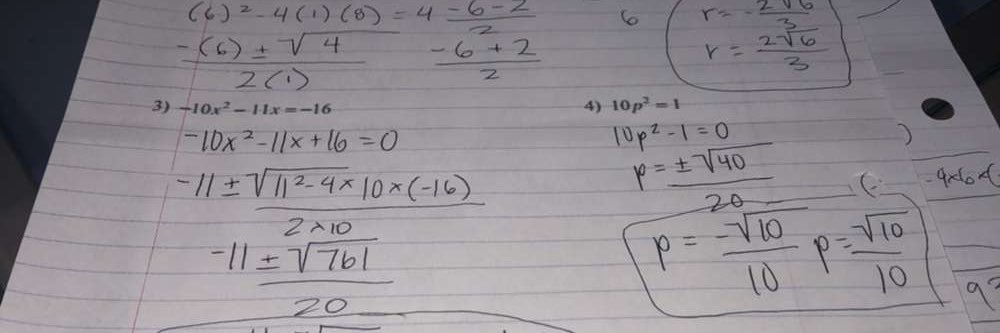 (6)² - 4(1)(8) = 4 -6-2/2
6
r = -2√6/3
-(6) ± √4 / 2(1)
-6+2/2
r = 2√6/3
3) -10x² - 11x = -16
-10x² - 11x + 16 = 0
-11 ± √11² - 4 × 10 × (-16) / 2 × 10
-11 ± √761 / 20
4) 10p² = 1
10p² - 1 = 0
p = ±√40 / 20
p = -√10/10 p = √10/10